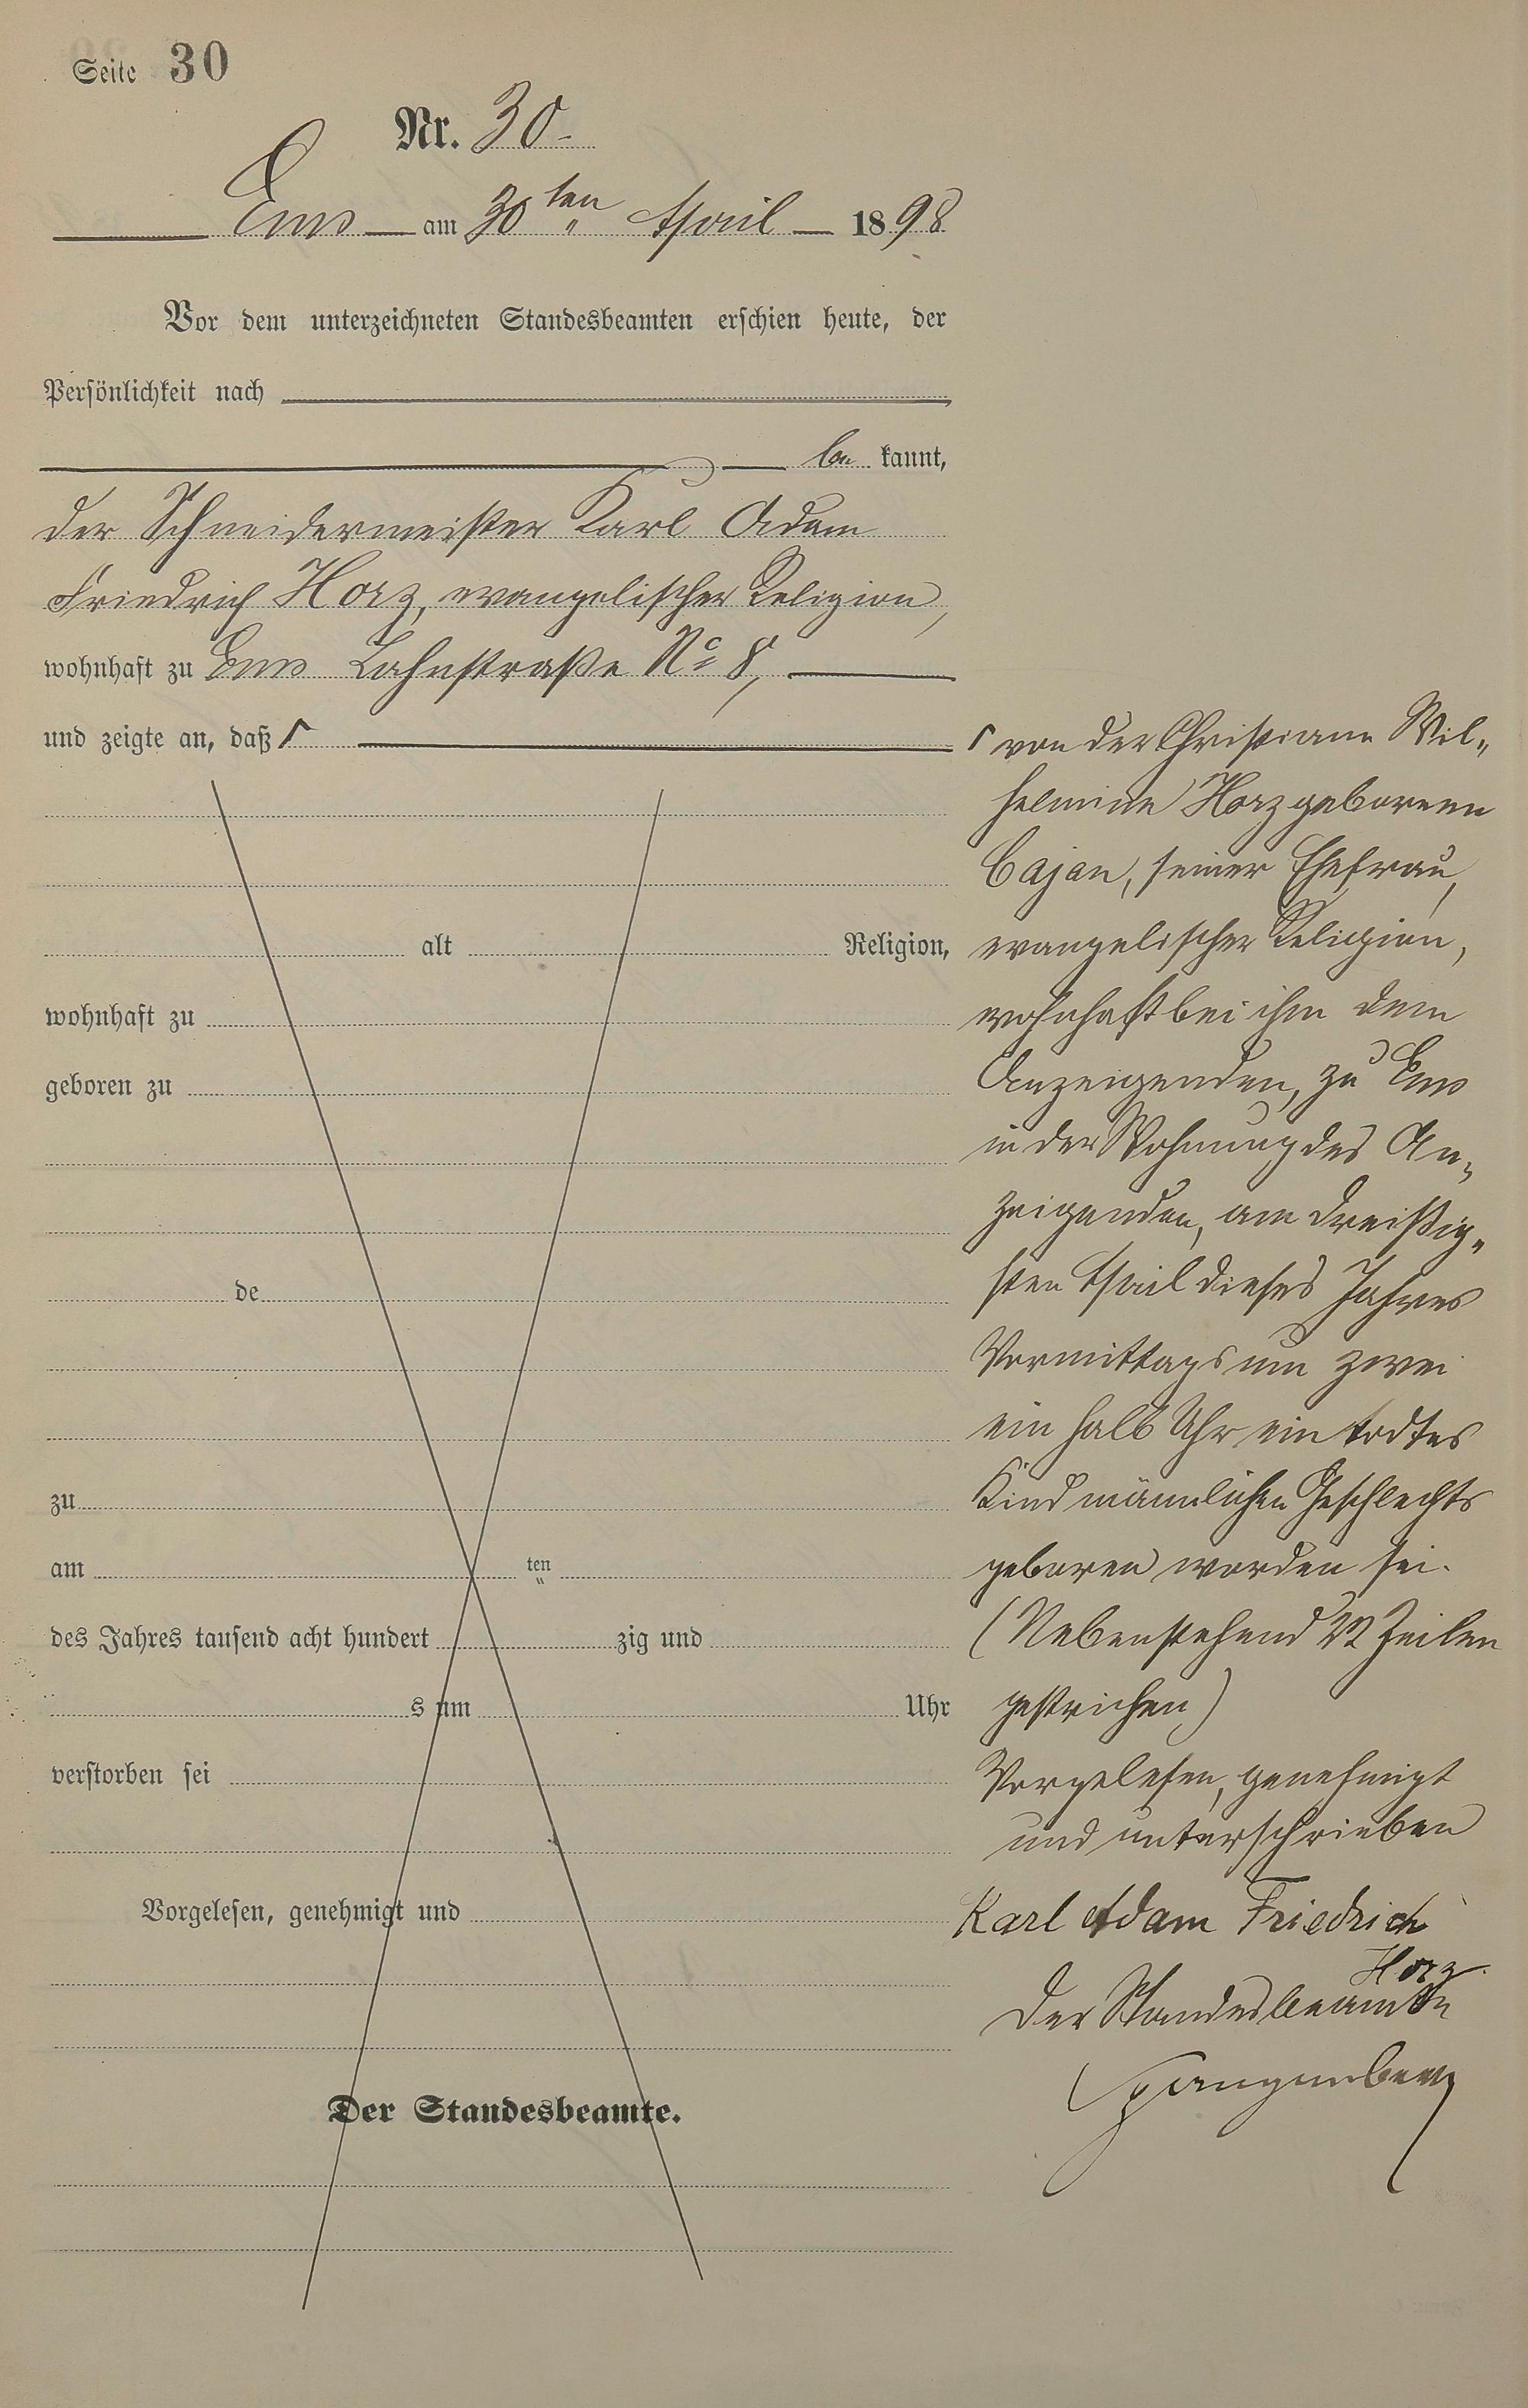 Seite 30
Nr. 30.
Ems am 30ten April 1898
Vor dem unterzeichneten Standesbeamten erschien heute, der
Persönlichkeit nach
be kannt,
der Schneidermeister Karl Adam
Friedrich Horz, evangelischer Religion,
wohnhaft zu Ems Lahnstraße No 8,
und zeigte an, daß ┌
alt Religion,
wohnhaft zu
geboren zu
de
zu
am ten
des Jahres tausend acht hundert zig und
s um Uhr
verstorben sei
Vorgelesen, genehmigt und
Der Standesbeamte.
┌ von der Christiane Wil„
helmine Horz geborenen
Cajan, seiner Ehefrau,
evangelischer Religion,
wohnhaft bei ihm dem
Anzeigenden, zu Ems
in der Wohnung des An„
zeigenden, am dreißig„
sten April dieses Jahres
Vormittags um zwei
ein halb Uhr ein todtes
Kind männlichen Geschlechts
geboren worden sei.
(Nebenstehend Zeilen
gestrichen)
Vorgelesen, genehmigt
und unterschrieben
Karl Adam Friedrich
Horz.
Der Standesbeamte
Spangenberg